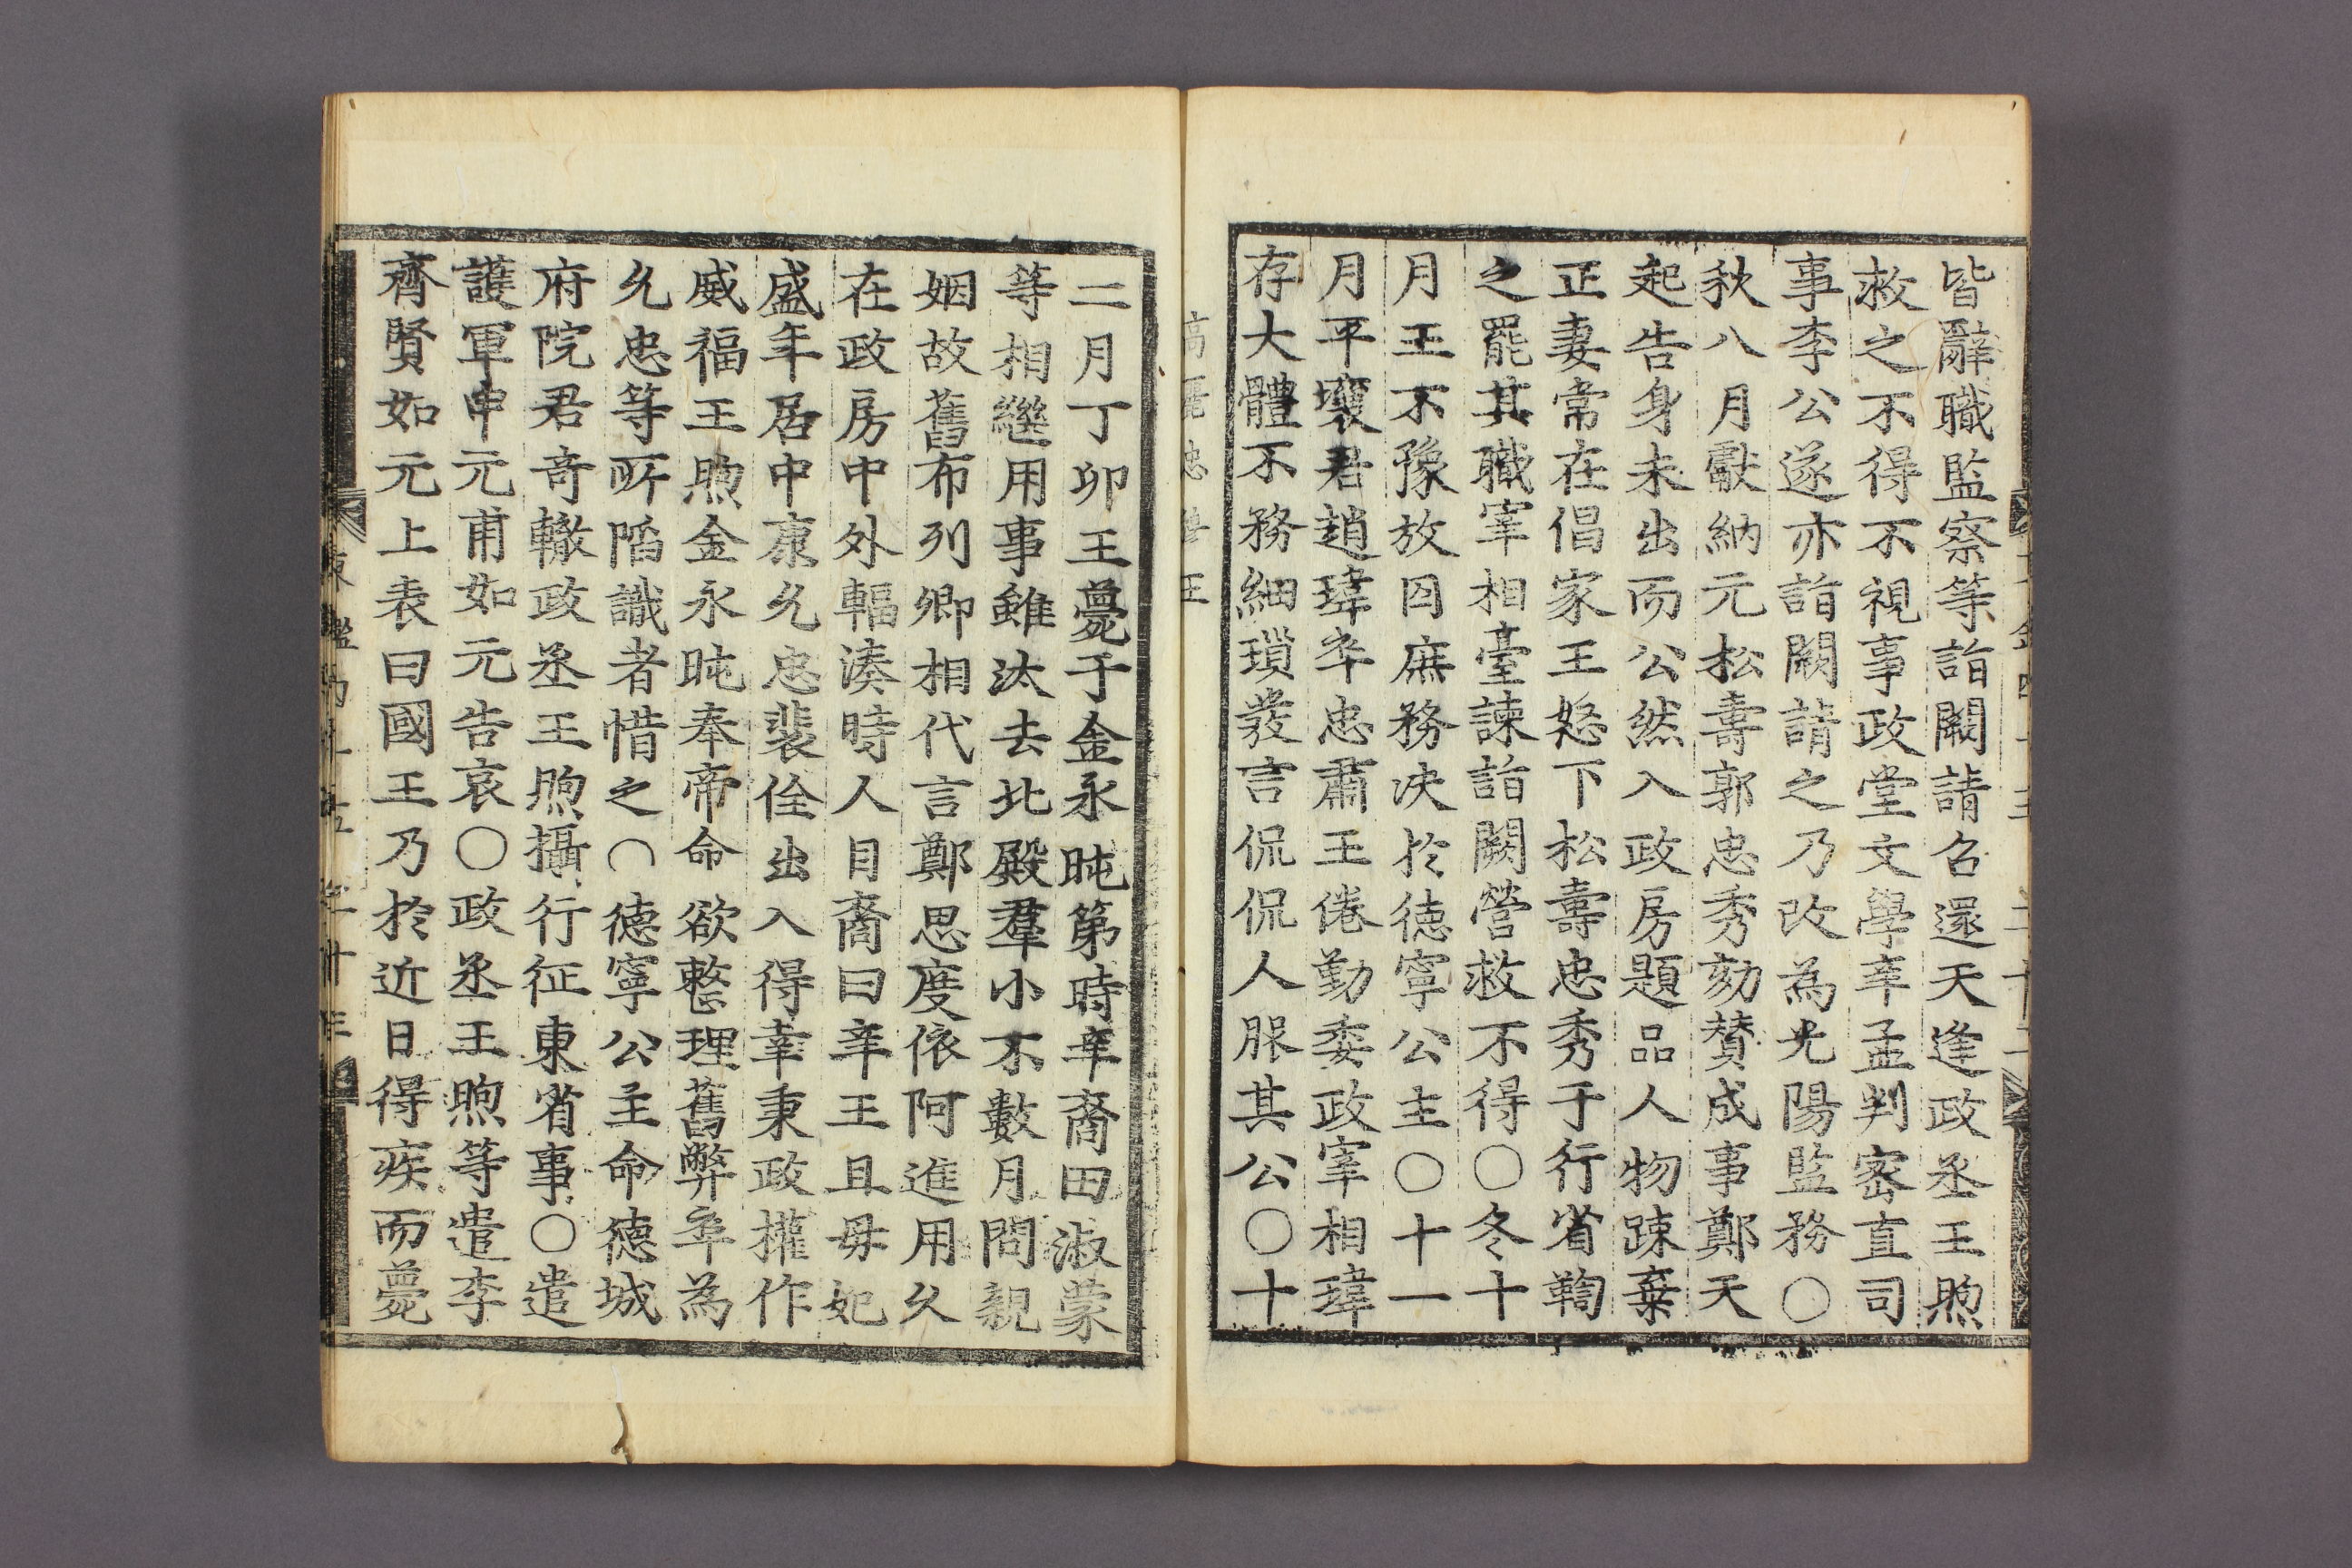 皆辭職監察等詣闕請召還天逢政丞王煦
救之不得不視事政堂文學辛孟判密直司
事李公遂亦詣闕請之乃改為光陽監務○
秋八月獻納元松壽郭忠秀劾贊成事鄭天
起告身未出而公然入政房題品人物踈棄
正妻常在倡家王怒下松壽忠秀于行省鞫
之罷其職宰相臺諫詣闕營救不得○冬十
月王不豫放囚庶務决於德寧公主○十一
月平壤君趙瑋卒忠肅王倦勤委政宰相瑋
存大體不務細瑣發言侃侃人服其公○十
高麗忠穆王
二月丁卯王薨于金永旽第時辛裔田淑蒙
等相繼用事雖汰去北殿羣小不數月問親
姻故舊布列卿相代言鄭思度依阿進用久
在政房中外輻湊時人目裔曰辛王且毋妃
盛年居中康允忠裴佺出入得幸秉政權作
威福王煦金永旽奉帝命欲整理舊弊卒為
允忠等所陷識者惜之○德寧公主命德城
府院君奇轍政丞王煦攝行征東省事○遣
護軍申元甫如元告哀○政丞王煦等遣李
齊賢如元上表曰國王乃於近日得疾而薨